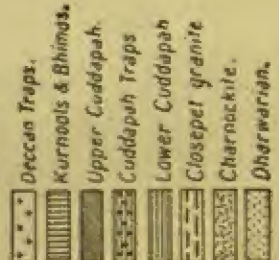 Deccan Traps.
Kurnools & Bhimas.
Upper Cuddapah.
Cuddapah Traps
Lower Cuddapah
Closepet granite
Charnockite.
Dharwarian.